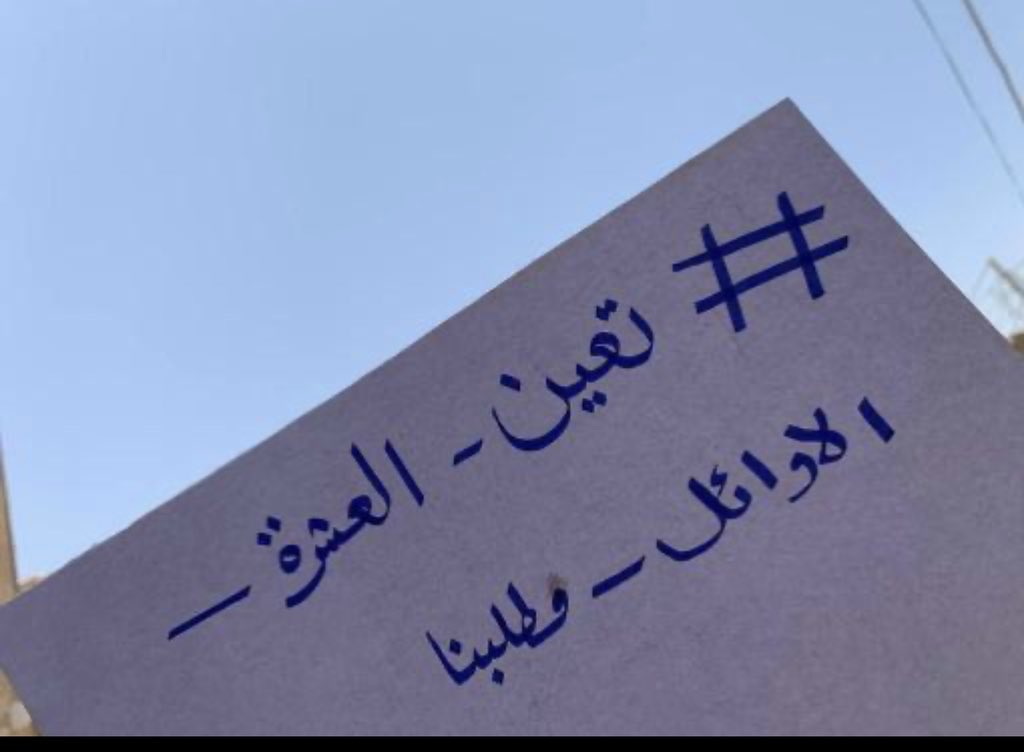 # تعين - العشرة -
الاوائل - مطلبنا